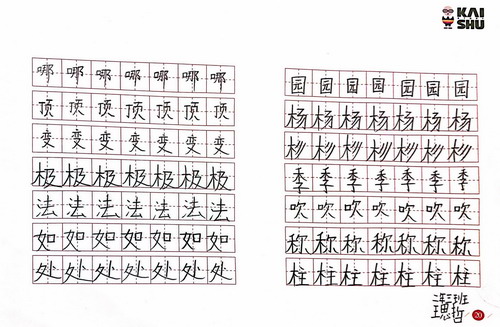 KAI
SHU
哪哪哪哪哪哪哪
顶顶顶顶顶顶顶
变变变变变变变
极极极极极极极
法法法法法法法
如如如如如如如
处处处处处处处
园园园园园园园
杨杨杨杨杨杨杨
杉杉杉杉杉杉杉
季季季季季季季
吹吹吹吹吹吹吹
称称称称称称称
柱柱柱柱柱柱柱
班
20